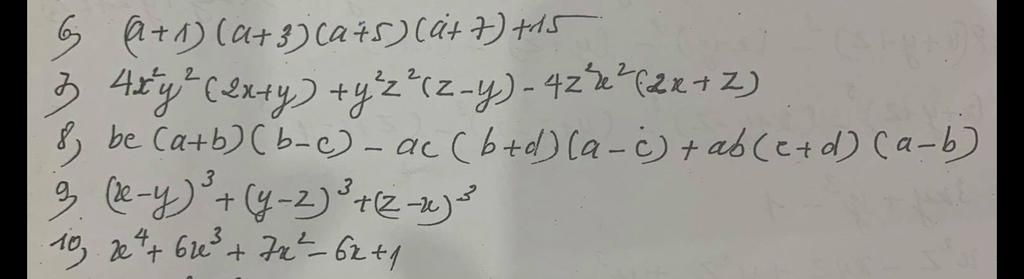 6, (a+1)(a+3)(a+5)(a+7)+15
7, 4x²y²(2x+y)+y²z²(z-y)-4z²x²(2x+z)
8, bc(a+b)(b-c)-ac(b+d)(a-c)+ab(c+d)(a-b)
9, (x-y)³+(y-z)³+(z-x)³
10, x⁴+6x³+7x²-6x+1